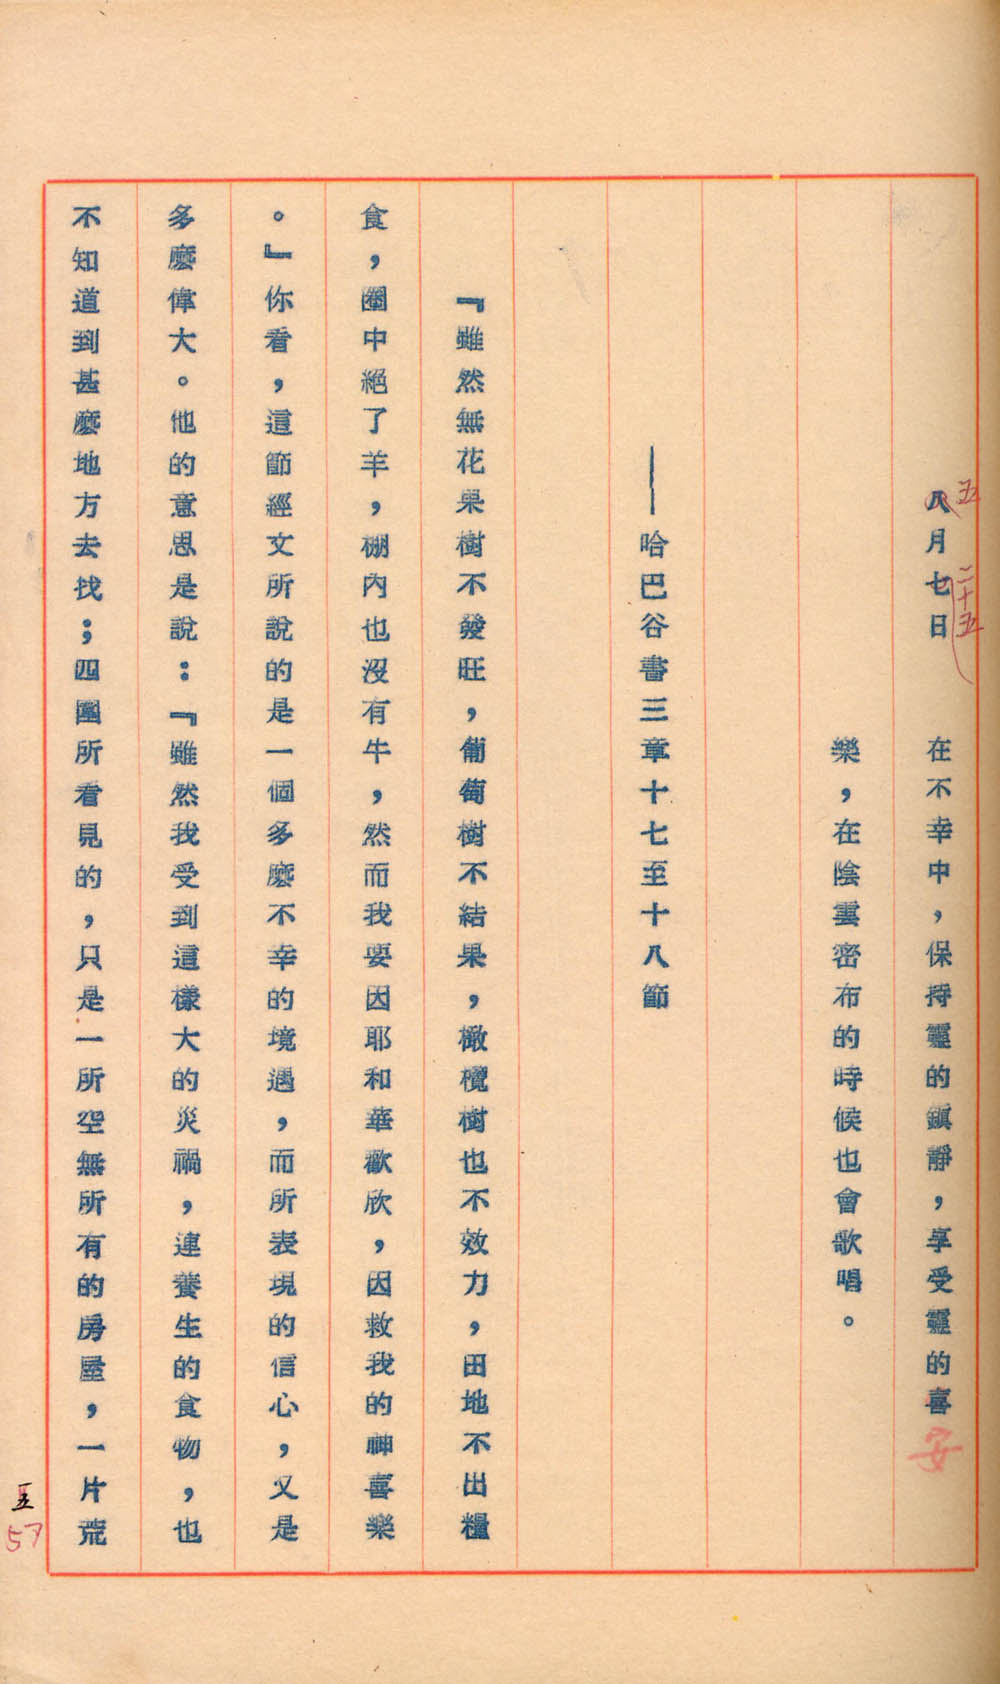 八月七日　在不幸中，保持靈的鎮靜，享受靈的喜
五
二十五
安
樂，在陰雲密布的時候也會歌唱。
——哈巴谷書三章十七至十八節
『雖然無花果樹不發旺，葡萄樹不結果，橄欖樹也不效力，田地不出糧
食，圈中絕了羊，棚內也沒有牛，然而我要因耶和華歡欣，因救我的神喜樂
。』你看，這節經文所說的是一個多麼不幸的境遇，而所表現的信心，又是
多麼偉大。他的意思是說：『雖然我受到這樣大的災禍，連養生的食物，也
不知道到甚麼地方去找；四圍所看見的，只是一所空無所有的房屋，一片荒
57